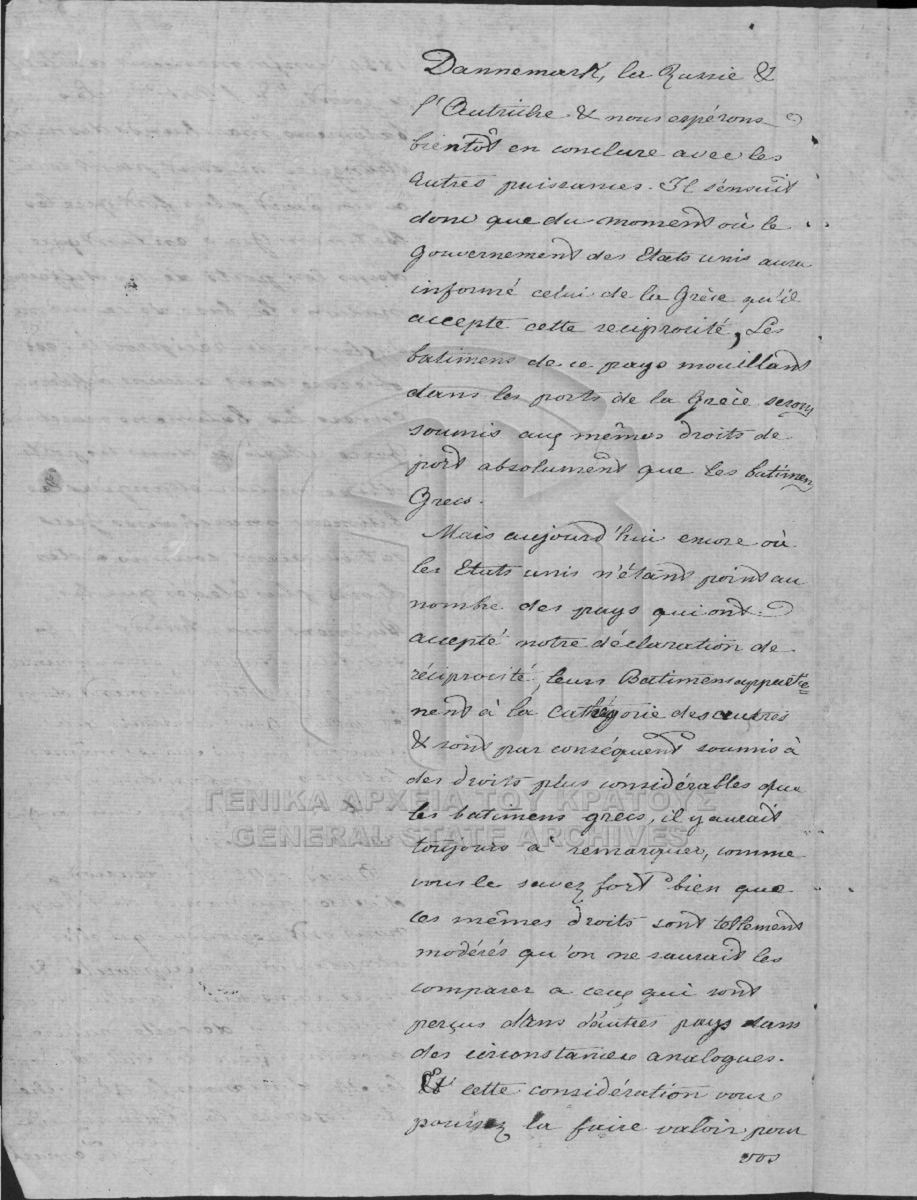 Dannemark, la Russie &
l'Autriche & nous espérons
bientôt en conclure avec les
autres puissances. Il s'ensuit
donc que du moment où le
gouvernement des Etats unis aura
informé celui de la Grèce qu'il
accepte cette reciprosité, Les
batimens de ce pays mouillant
dans les ports de la Grèce seront
soumis aux mêmes droits de
port absolument que les batimens
Grecs.
Mais aujourd'hui encore où
les Etats unis n'étant point au
nombre des pays qui ont
accepté notre déclaration de
réciprocité, leurs Batimens apparte
nent à la cathégorie des autres
& sont par conséquent soumis à
des droits plus considérables que
les batimens grecs, il y aurait
toujours à remarquer, comme
vous le savez fort bien que
ces mêmes droits sont tellement
modérés qu'on ne saurait les
comparer a ceux qui sont
perçus dans d'autres pays dans
des circonstances analogues.
Et cette considération vous
pourrez la faire valoir pour
vos
ΓΕΝΙΚΑ ΑΡΧΕΙΑ ΤΟΥ ΚΡΑΤΟΥΣ
GENERAL STATE ARCHIVES